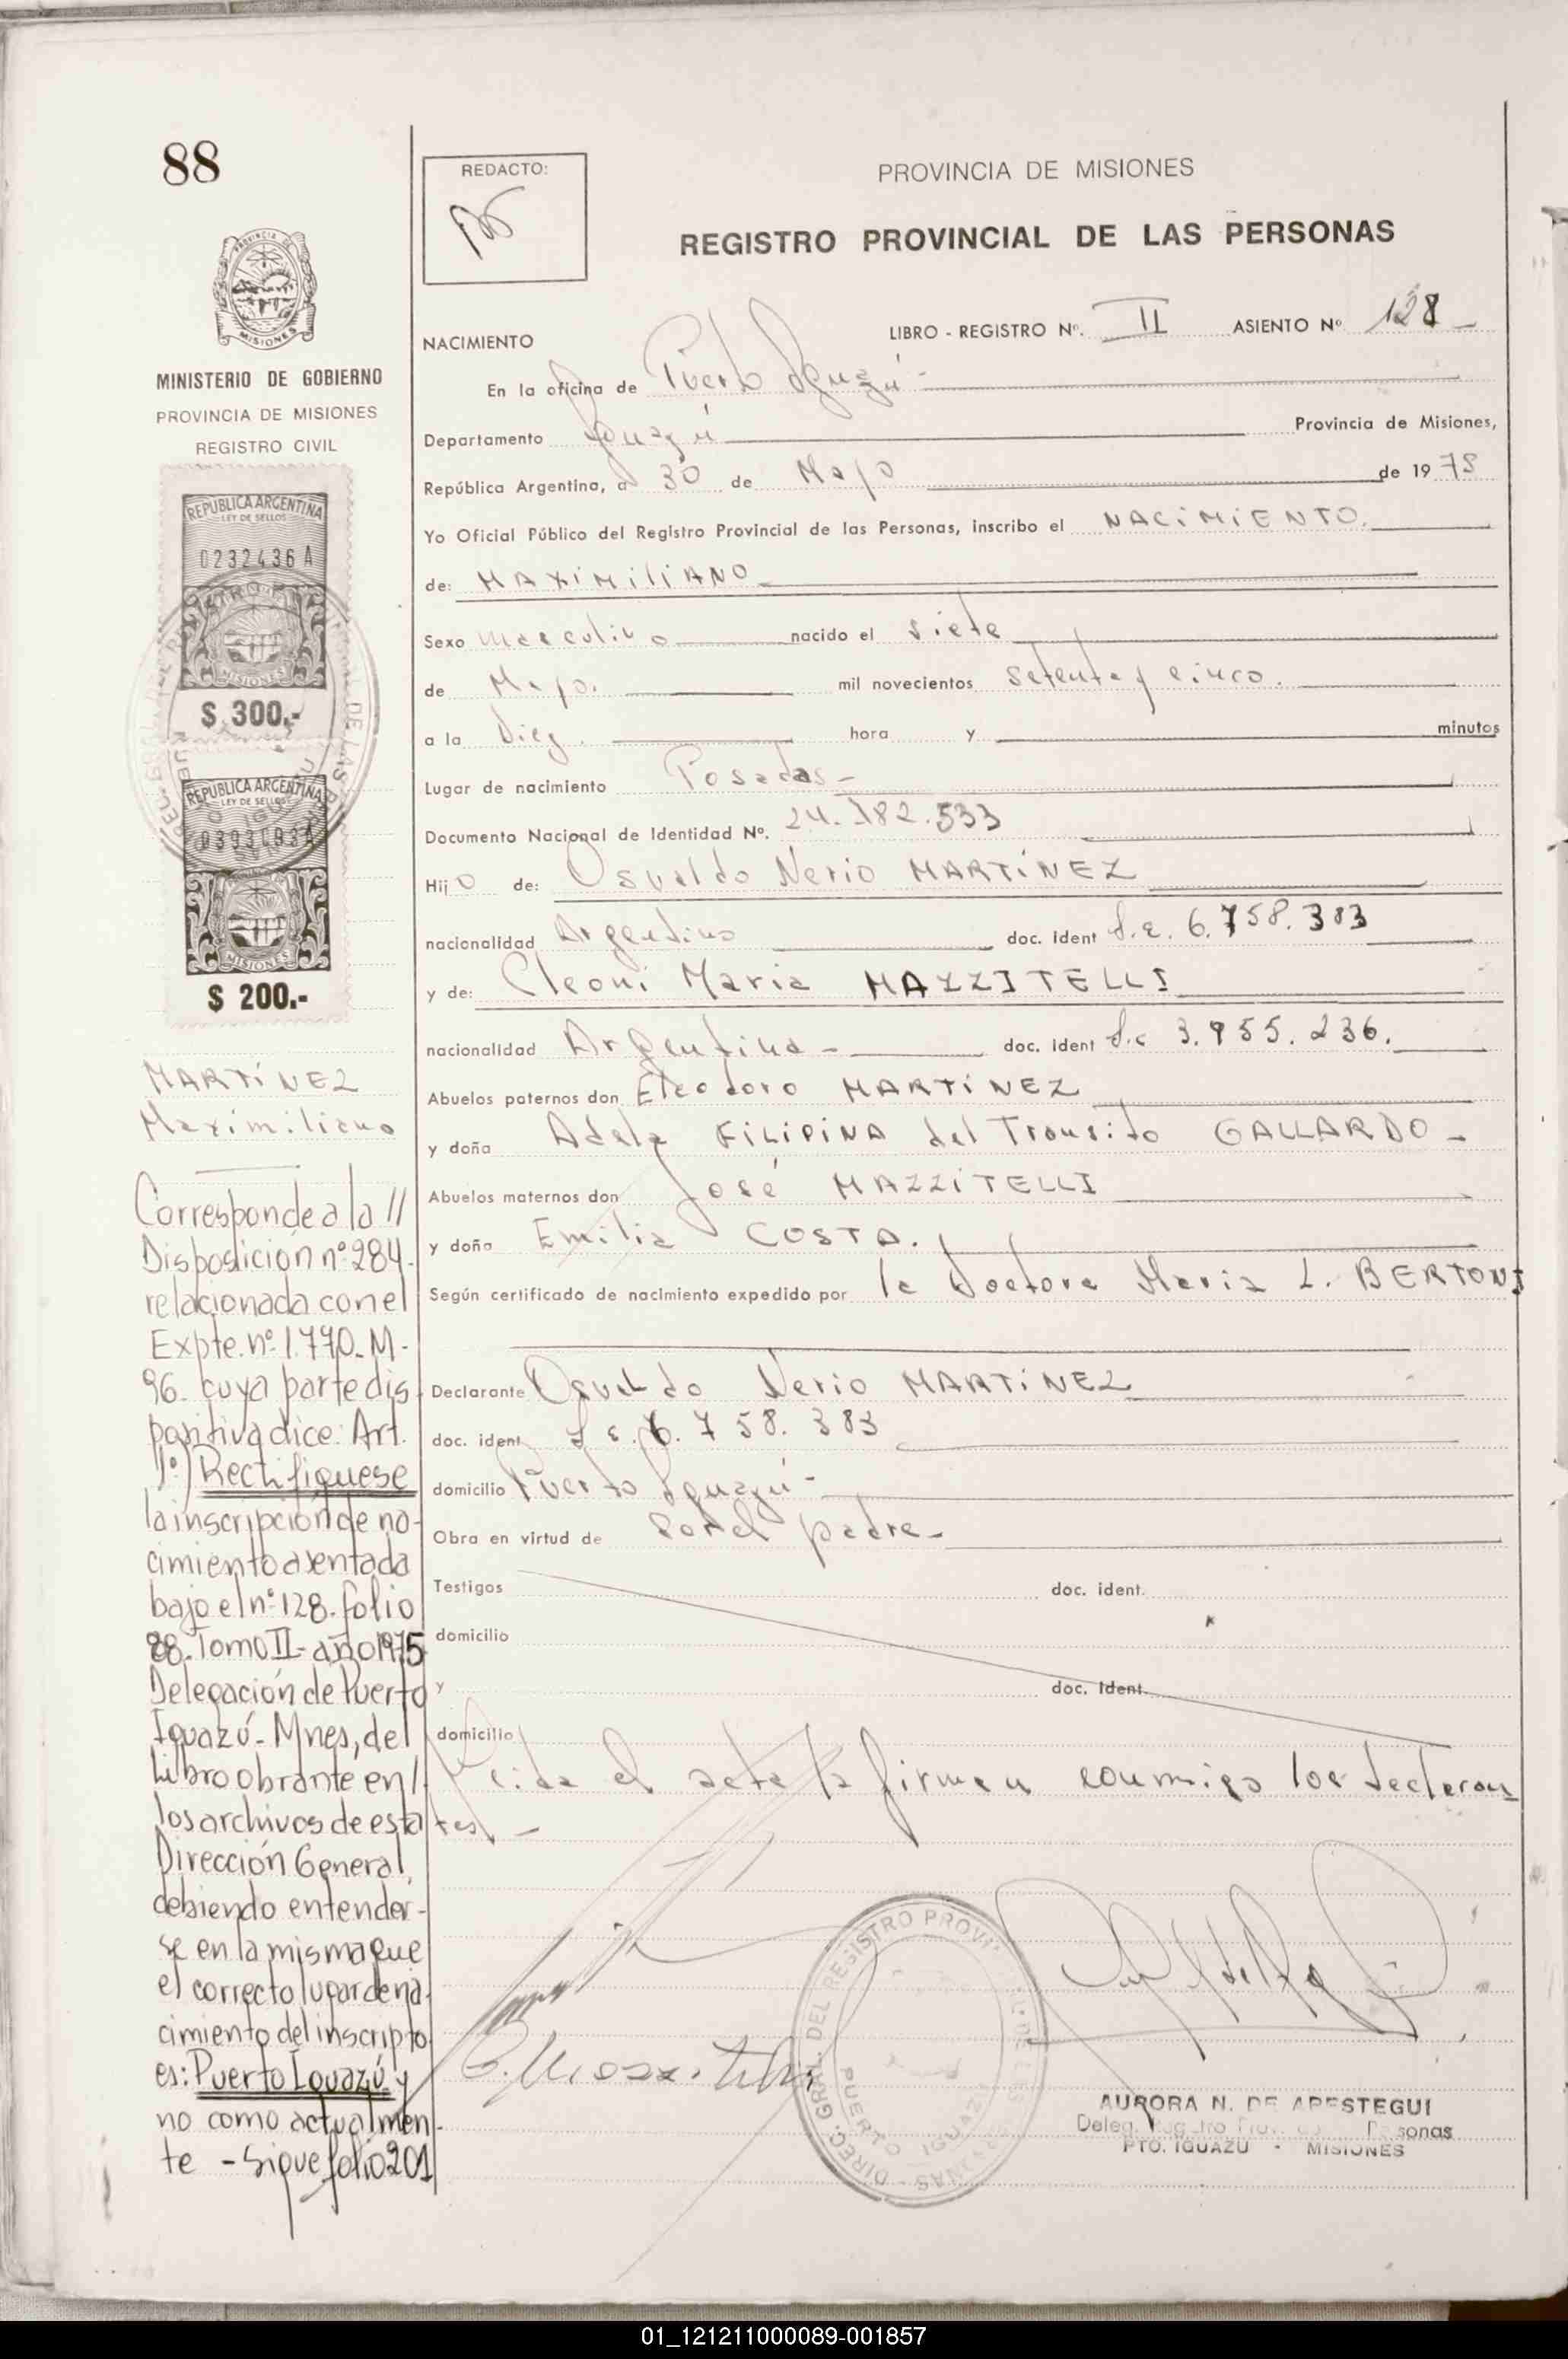 88
PROVINCIA DE MISIONES
MINISTERIO DE GOBIERNO
PROVINCIA DE MISIONES
REGISTRO CIVIL
REPUBLICA ARGENTINA
LEY DE SELLOS
0232436 A
MISIONES
$ 300.-
REPUBLICA ARGENTINA
LEY DE SELLOS
MISIONES
$ 200.-
MARTíNEZ
Maximiliano
Corresponde a la //
Disposición nº 284-
relacionada con el
Expte. nº 1.770-M-
96- cuya parte dis
positiva dice: Art.
1º) Rectifiquese
la inscripción de na-
cimiento asentada
bajo el nº 128-folio
88-Tomo II-año 1975
Delegación de Puerto
Iguazú-Mnes, del
Libro obrante en /
los archivos de esta
Dirección General,
debiendo entender-
se en la misma que
el correcto lugar de na
cimiento del inscripto
es: Puerto Iguazú y
no como actualmen-
te - Sigue folio 201
REDACTO:
PROVINCIA DE MISIONES
REGISTRO PROVINCIAL DE LAS PERSONAS
NACIMIENTO LIBRO - REGISTRO Nº. II ASIENTO Nº 128
En la oficina de Puerto Iguazú -
Departamento Iguazú Provincia de Misiones,
República Argentina, a 30 de Mayo de 1975
Yo Oficial Público del Registro Provincial de las Personas, inscribo el NACiMiENTO.
de: MAXiMiliANO
Sexo masculino nacido el siete
de Mayo. mil novecientos setenta y cinco.
a la Diez. hora y minutos
Lugar de nacimiento Posadas -
Documento Nacional de Identidad Nº. 24.382.533
Hijo de: Osvaldo Nerio MARTíNEZ
nacionalidad Argentino doc. ident L.E. 6.758.383
y de: Cleoni Maria MAZZITELLI
nacionalidad Argentina - doc. ident L.C 3.955.236.
Abuelos paternos don Eleodoro MARTíNEZ
y doña Adela FiLiPiNA del Transito GALLARDO -
Abuelos maternos don José MAZZiTELLI
y doña Emilia COSTA.
Según certificado de nacimiento expedido por la Doctora Maria L. BERTONI
Declarante Osvaldo Nerio MARTíNEZ
doc. ident L.E. 6.758.383
domicilio Puerto Iguazú -
Obra en virtud de ser el padre -
Testigos doc. ident.
domicilio
y doc. ident.
domicilio
Leida el acta la firman conmigo los declaran
tes -
C. Mazzitelli
DIREC. GRAL. DEL REGISTRO PROV. DE LAS PERSONAS
PUERTO IGUAZU
AURORA N. DE APESTEGUI
PTO. IGUAZU - MISIONES
01_121211000089-001857